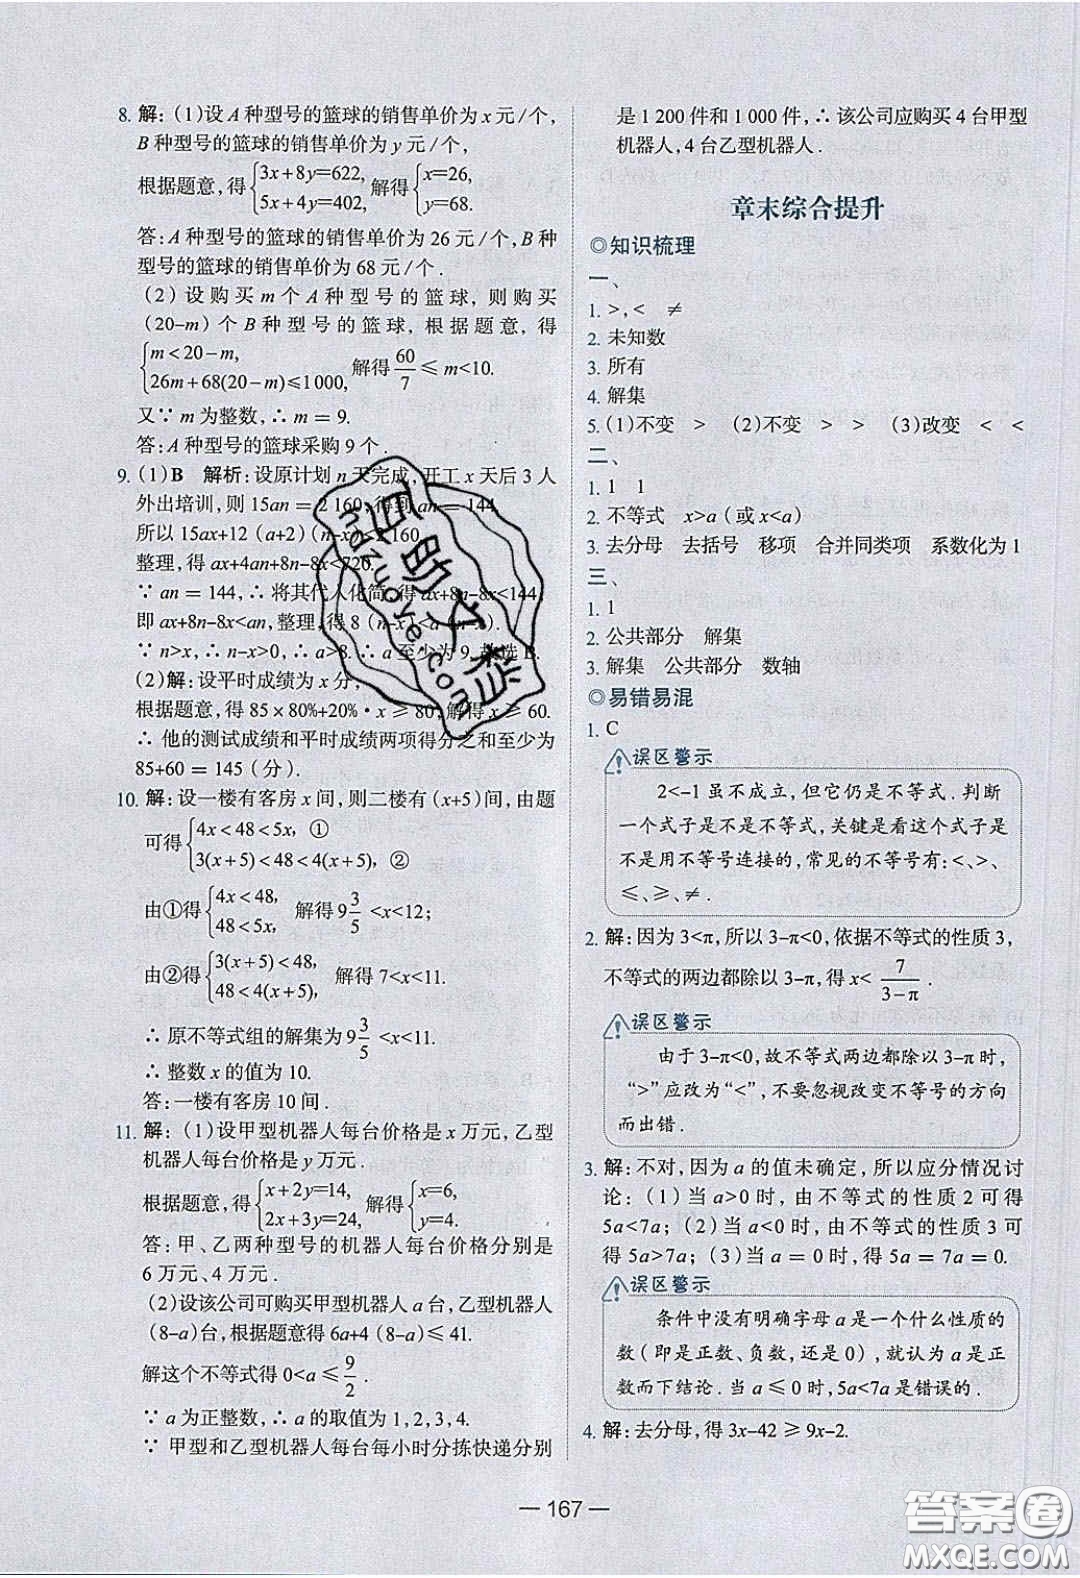 8. 解：(1)设A种型号的篮球的销售单价为x元/个，
B种型号的篮球的销售单价为y元/个，
根据题意，得{3x+8y=622, 5x+4y=402, 解得{x=26, y=68.
答：A种型号的篮球的销售单价为26元/个，B种
型号的篮球的销售单价为68元/个.
(2)设购买m个A种型号的篮球，则购买
(20-m)个B种型号的篮球，根据题意，得
{m<20-m, 26m+68(20-m)≤1 000, 解得60/7≤m<10.
又∵m为整数，∴m=9.
答：A种型号的篮球采购9个.
9. (1)B 解析：设原计划n天完成，开工x天后3人
外出培训，则15an=2 160，得到an=144，
所以15ax+12(a+2)(n-x)<2 160.
整理，得ax+4an+8n-8x<720.
∵an=144，∴将其代入化简，得ax+8n-8x<144，
即ax+8n-8x<an，整理，得8(n-x)<a(n-x).
∵n>x，∴n-x>0，∴a>8.∴a至少为9.故选B.
(2)解：设平时成绩为x分，
根据题意，得85×80%+20%·x≥80，解得x≥60.
∴他的测试成绩和平时成绩两项得分之和至少为
85+60=145(分).
10. 解：设一楼有客房x间，则二楼有(x+5)间，由题
可得{4x<48<5x，① 3(x+5)<48<4(x+5)，②
由①得{4x<48， 48<5x， 解得9 3/5<x<12；
由②得{3(x+5)<48， 48<4(x+5)， 解得7<x<11.
∴原不等式组的解集为9 3/5<x<11.
∴整数x的值为10.
答：一楼有客房10间.
11. 解：(1)设甲型机器人每台价格是x万元，乙型
机器人每台价格是y万元.
根据题意，得{x+2y=14, 2x+3y=24, 解得{x=6, y=4.
答：甲、乙两种型号的机器人每台价格分别是
6万元、4万元.
(2)设该公司可购买甲型机器人a台，乙型机器人
(8-a)台，根据题意得6a+4(8-a)≤41.
解这个不等式得0<a≤9/2.
∵a为正整数，∴a的取值为1,2,3,4.
∵甲型和乙型机器人每台每小时分拣快递分别
是1 200件和1 000件，∴该公司应购买4台甲型
机器人，4台乙型机器人.
章末综合提升
◎知识梳理
一、
1. >,< ≠
2. 未知数
3. 所有
4. 解集
5. (1)不变 > (2)不变 > > (3)改变 < <
二、
1. 1 1
2. 不等式 x>a(或x<a)
3. 去分母 去括号 移项 合并同类项 系数化为1
三、
1. 1
2. 公共部分 解集
3. 解集 公共部分 数轴
◎易错易混
1. C
误区警示
2<-1虽不成立，但它仍是不等式.判断
一个式子是不是不等式，关键是看这个式子是
不是用不等号连接的，常见的不等号有：<、>、
≤、≥、≠.
2. 解：因为3<π，所以3-π<0，依据不等式的性质3，
不等式的两边都除以3-π，得x<7/(3-π).
误区警示
由于3-π<0，故不等式两边都除以3-π时，
“>”应改为“<”，不要忽视改变不等号的方向
而出错.
3. 解：不对，因为a的值未确定，所以应分情况讨
论：(1)当a>0时，由不等式的性质2可得
5a<7a；(2)当a<0时，由不等式的性质3可
得5a>7a；(3)当a=0时，得5a=7a=0.
误区警示
条件中没有明确字母a是一个什么性质的
数(即是正数、负数，还是0)，就认为a是正
数而下结论.当a≤0时，5a<7a是错误的.
4. 解：去分母，得3x-42≥9x-2.
— 167 —
答案圈
MXQE.COM